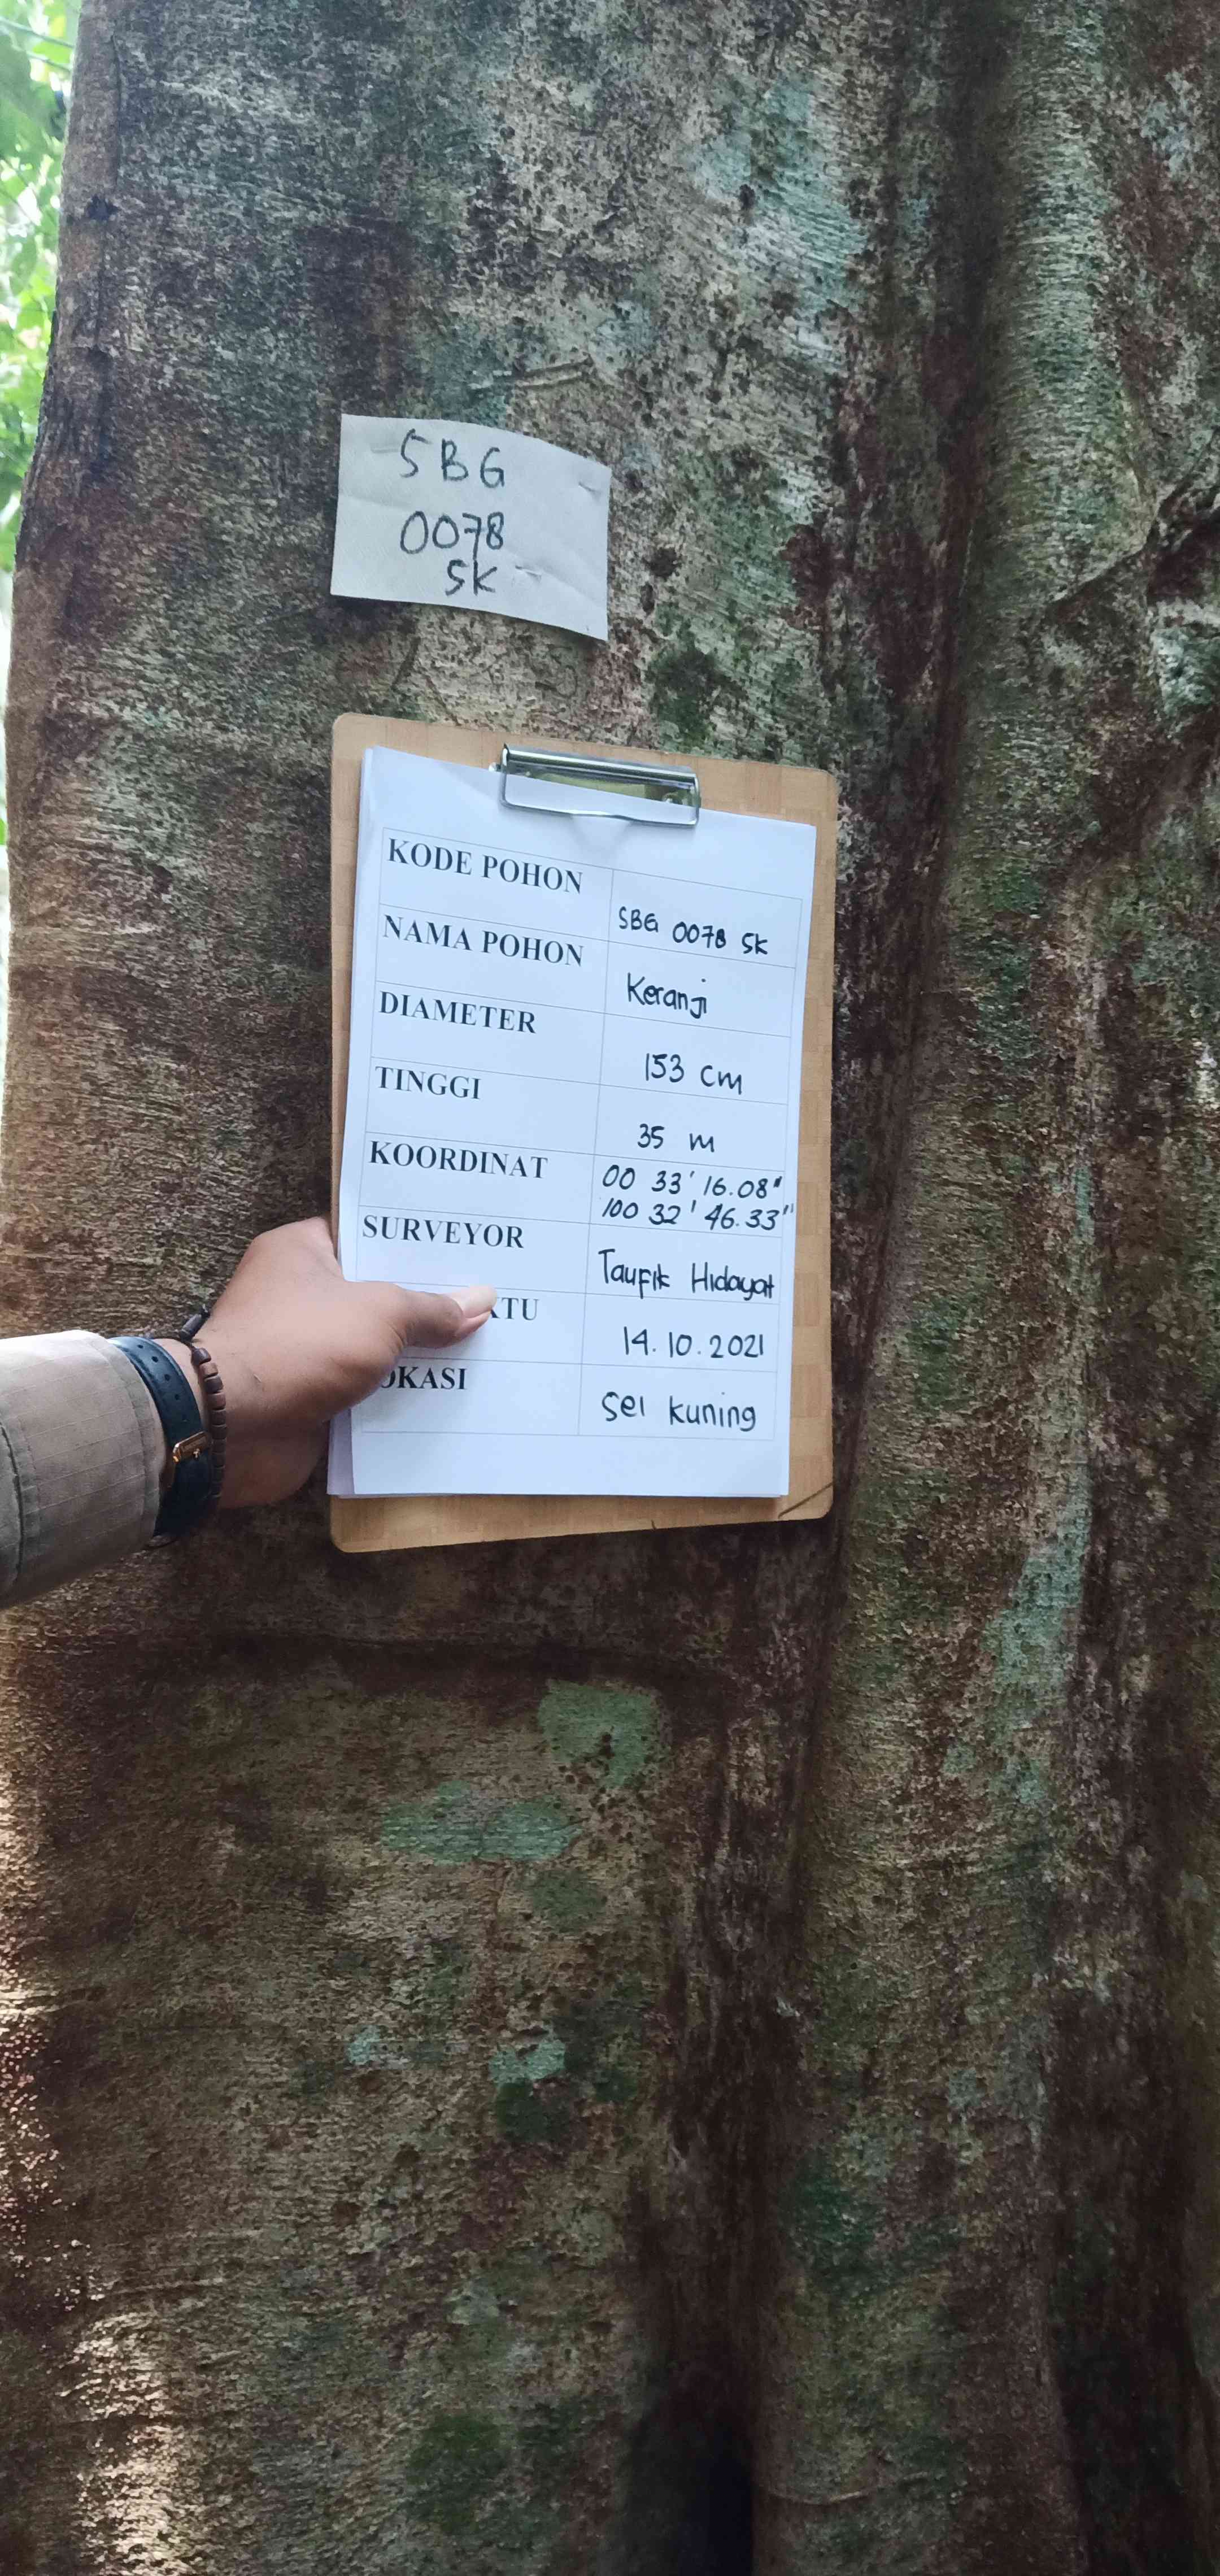 SBG
0078
SK
KODE POHON SBG 0078 SK
NAMA POHON Keranji
DIAMETER 153 cm
TINGGI 35 m
KOORDINAT 00 33' 16.08"
100 32' 46.33"
SURVEYOR Taufik Hidayat
KTU 14.10.2021
OKASI Sei Kuning